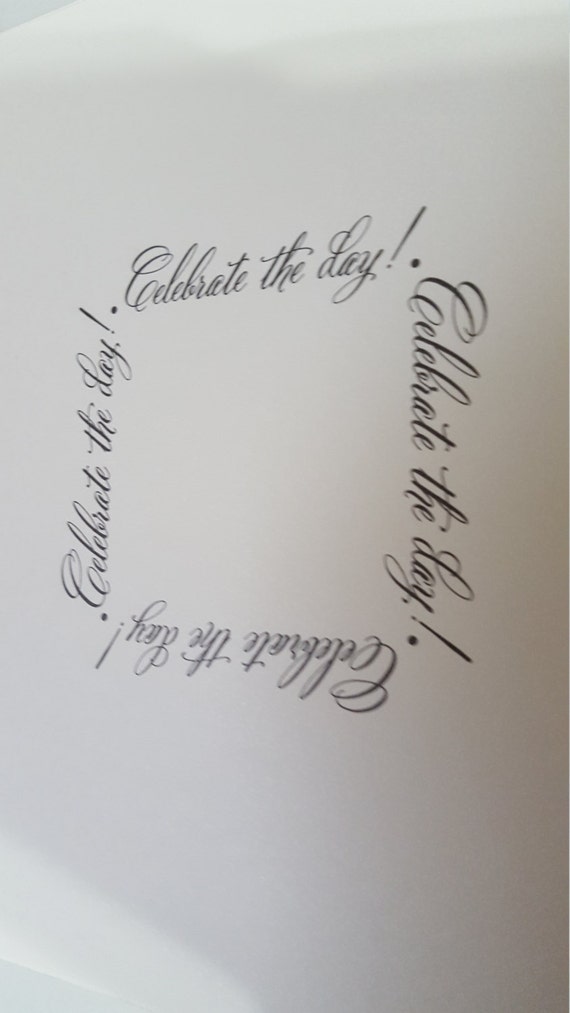 Celebrate the day!
Celebrate the day!
Celebrate the day!
Celebrate the day!